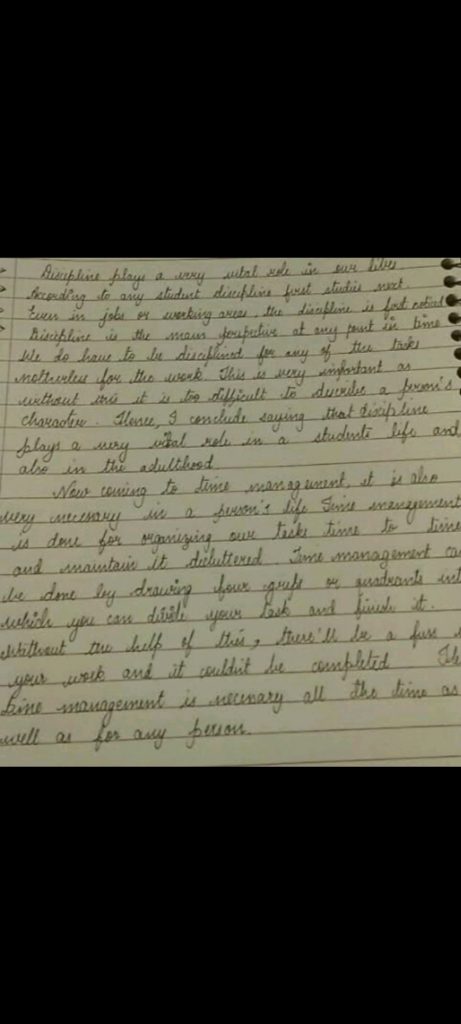 Discipline plays a very vital role in our lives
According to any student discipline first studies next.
Even in jobs or working areas, the discipline is first noticed
Discipline is the main at any point in time
We do have to be disciplined for any of the tasks
for the work. This is very important as
without this it is too difficult to describe a person's
character. Hence, I conclude saying that discipline
plays a very vital role in a students life and
also in the adulthood.
Now coming to time management, it is also
very necessary in a person's life Time management
is done for organizing our tasks time to time
and maintain it decluttered. Time management
be done by drawing four grids or quadrants
which you can divide your task and finish it.
Without the help of this, there'll be a fuss
your work and it couldn't be completed
time management is necessary all the time as
well as for any person.